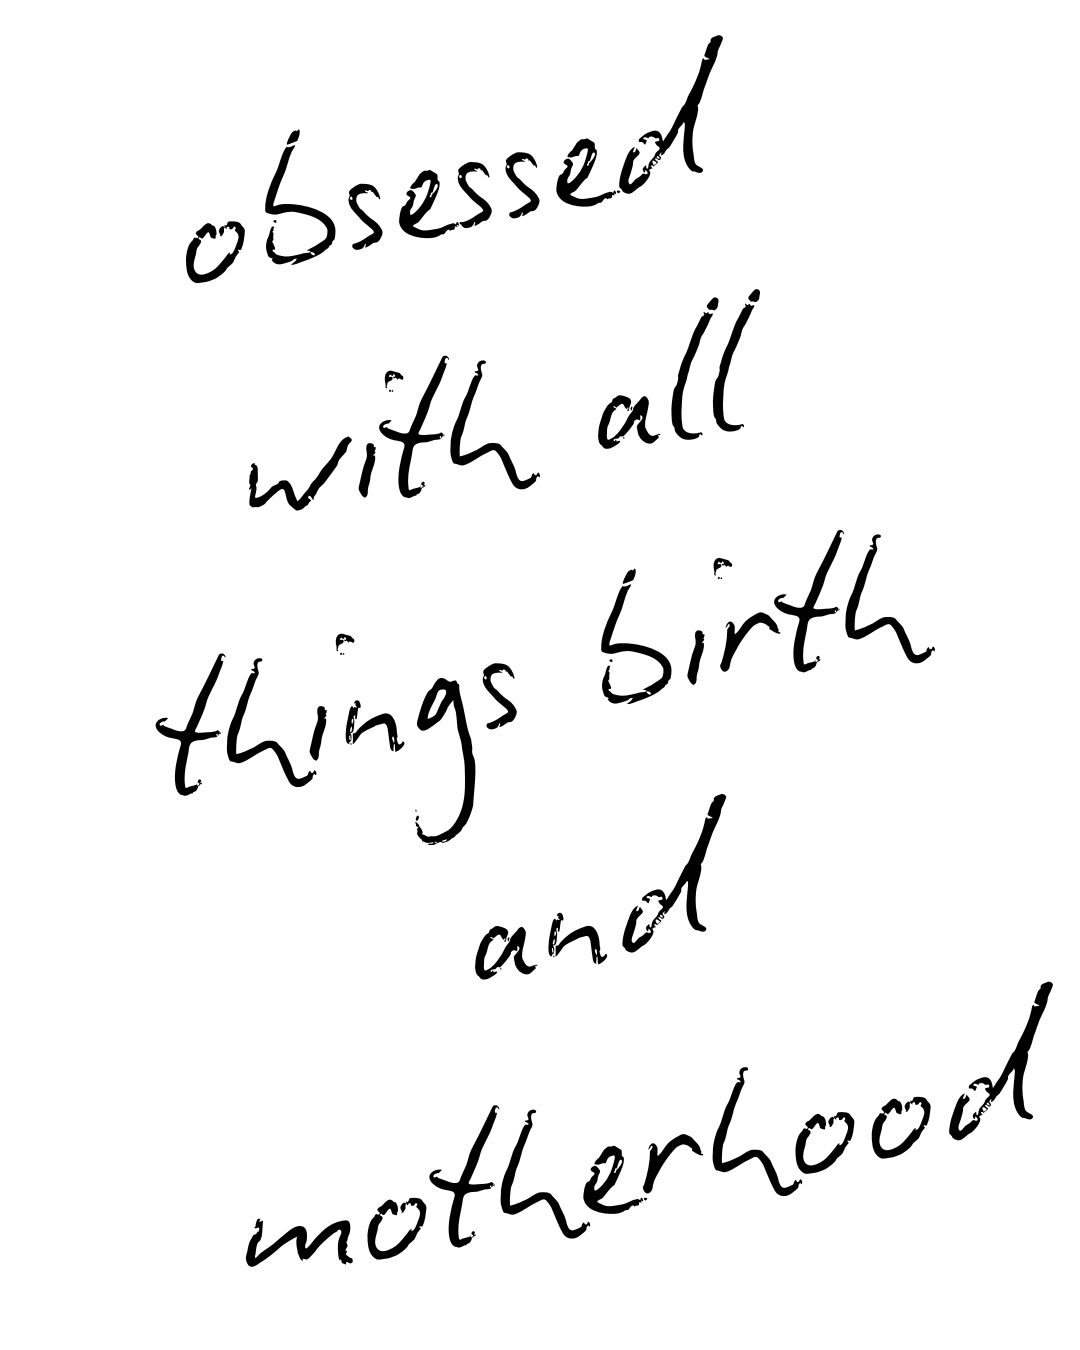 obsessed
with all
things birth
and
motherhood